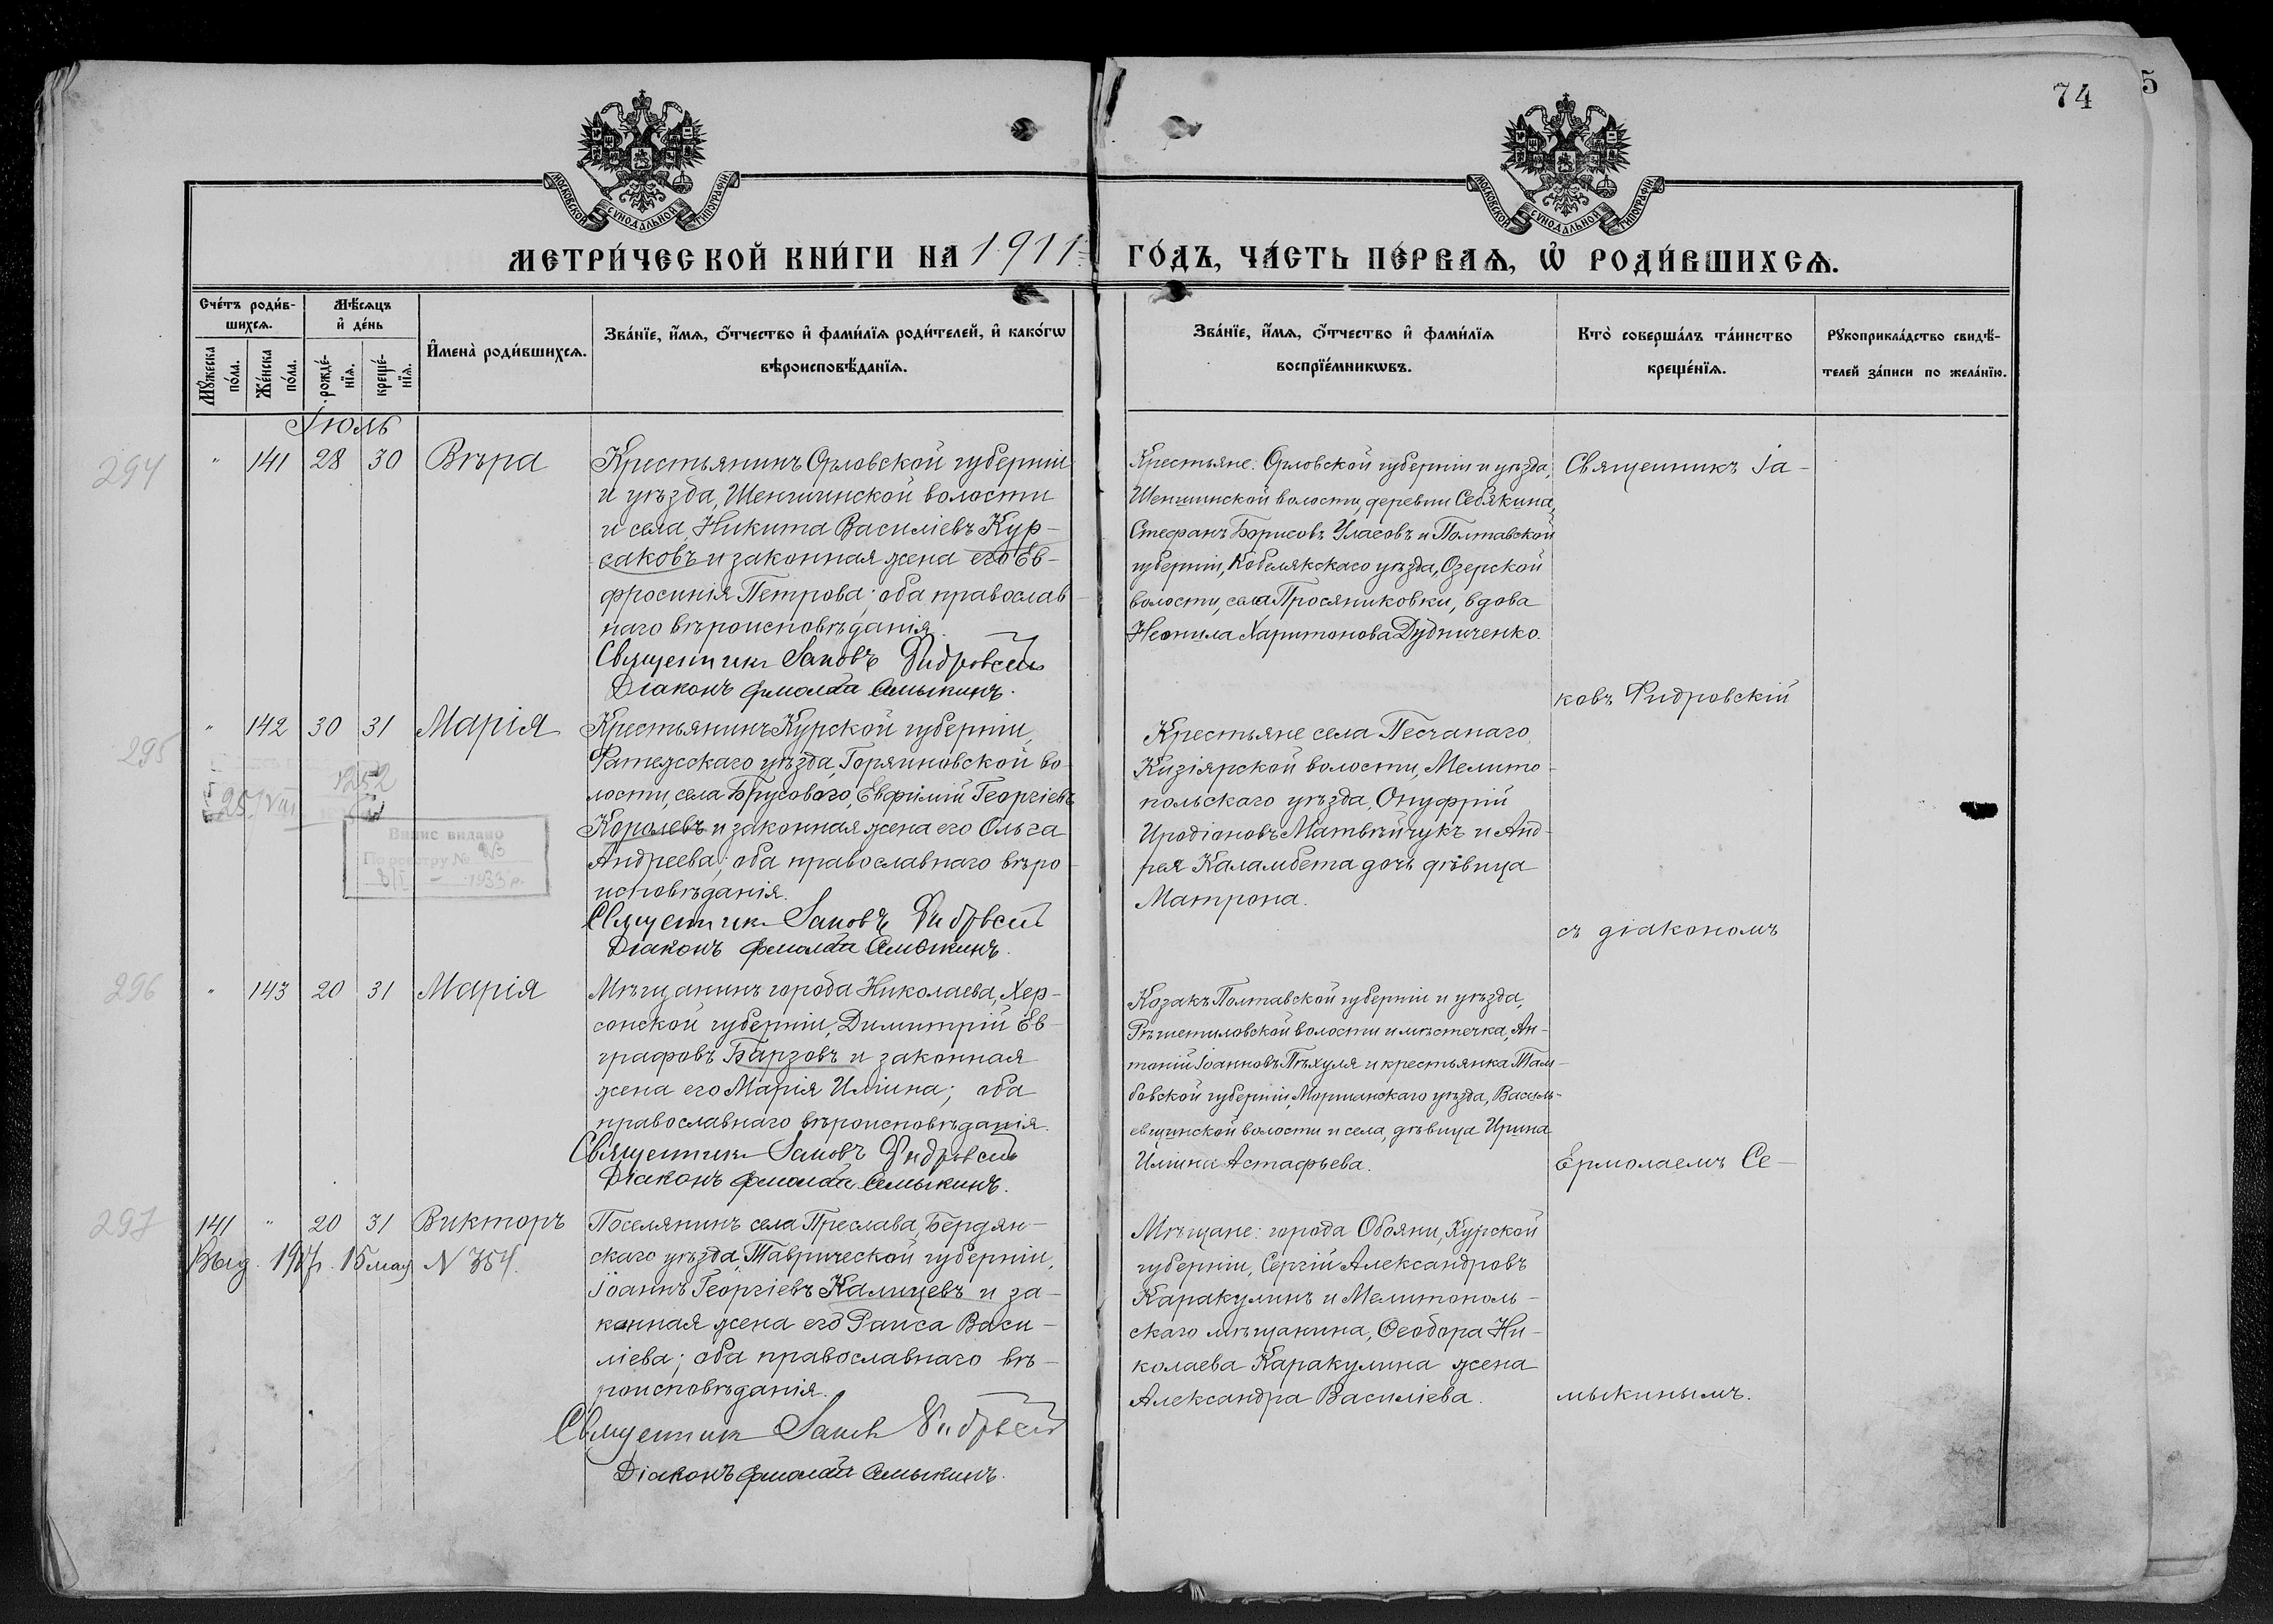 74
5
МОСКОВСКОЙ СУНОДАЛЬНОЙ ТИПОГРАФІИ
МОСКОВСКОЙ СУНОДАЛЬНОЙ ТИПОГРАФІИ
МЕТРИ́ЧЕСКОЙ КНИ́ГИ НА 1911
ГО́ДЪ, ЧА́СТЬ ПЕ́РВАѦ, Ѡ҆ РОДИ́ВШИХСѦ.
Сче́тъ роди́в-
шихсѧ.
Мꙋ́жеска по́ла.
Же́нска по́ла.
Мѣ́сѧцъ и҆ де́нь
рожде́-нїѧ.
креще́-нїѧ.
И҆мена̀ роди́вшихсѧ.
Зва́нїе, и҆́мѧ, ѻ҆́тчество и҆ фами́лїѧ роди́телей, и҆ како́гѡ
вѣроисповѣ́данїѧ.
Зва́нїе, и҆́мѧ, ѻ҆́тчество и҆ фами́лїѧ
воспрїе́мникѡвъ.
Кто̀ соверша́лъ та́инство
креще́нїѧ.
Рꙋкоприкла́дство свидѣ́-
телей за́писи по жела́нїю.
Іюль
294
" 141 28 30 Вѣра
Крестьянинъ Орловской губерніи
и уѣзда, Шеншинской волости
и села, Никита Василіевъ Кур-
саковъ и законная жена его Ев-
фросинія Петрова; оба православ-
наго вѣроисповѣданія.
Священникъ Іаковъ Фидровскій
Діаконъ Ермолай Семыкинъ.
Крестьяне: Орловской губерніи и уѣзда,
Шеншинской волости, деревни Себякина,
Стефанъ Борисовъ Уласовъ и Полтавской
губерніи, Кобелякскаго уѣзда, Озерской
волости, села Просяниковки, вдова
Неонила Харитонова Дудниченко.
Священникъ Іа-
ковъ Фидровскій
295
" 142 30 31 Марія
1252
25/VIII
Випис видано
По реєстру №
8/I - 1933 р.
Крестьянинъ Курской губерніи,
Фатежскаго уѣзда, Горяиновской во-
лости, села Брусового, Евфимій Георгіевъ
Королевъ и законная жена его Ольга
Андреева; оба православнаго вѣро-
исповѣданія.
Священникъ Іаковъ Фидровскій
Діаконъ Ермолай Семыкинъ.
Крестьяне села Песчанаго,
Кизіярской волости, Мелито-
польскаго уѣзда, Онуфрій
Иродіоновъ Матвѣйчукъ и Анд-
рея Каламбета дочь дѣвица
Матрона.
съ діакономъ
296
" 143 20 31 Марія
Мѣщанинъ города Николаева, Хер-
сонской губерніи, Димитрій Ев-
графовъ Барзовъ и законная
жена его Марія Иліина; оба
православнаго вѣроисповѣданія.
Священникъ Іаковъ Фидровскій
Діаконъ Ермолай Семыкинъ.
Козакъ Полтавской губерніи и уѣзда,
Рѣшетиловской волости и мѣстечка, Ан-
тоній Іоанновъ Пѣхуля и крестьянка Там-
бовской губерніи, Моршанскаго уѣзда, Василь-
евщинской волости и села, дѣвица Ирина
Иліина Астафьева.
Ермолаемъ Се-
297
141 " 20 31 Викторъ
Выд. 1917г. 15 мая N 354.
Поселянинъ села Преслава, Бердян-
скаго уѣзда, Таврической губерніи,
Іоаннъ Георгіевъ Калицевъ и за-
конная жена его Раиса Васи-
ліева; оба православнаго вѣ-
роисповѣданія.
Священникъ Іаковъ Фидровскій
Діаконъ Ермолай Семыкинъ.
Мѣщане: города Обояни, Курской
губерніи, Сергій Александровъ
Каракулинъ и Мелитополь-
скаго мѣщанина, Ѳеодора Ни-
колаева Каракулина жена
Александра Василіева.
мыкинымъ.